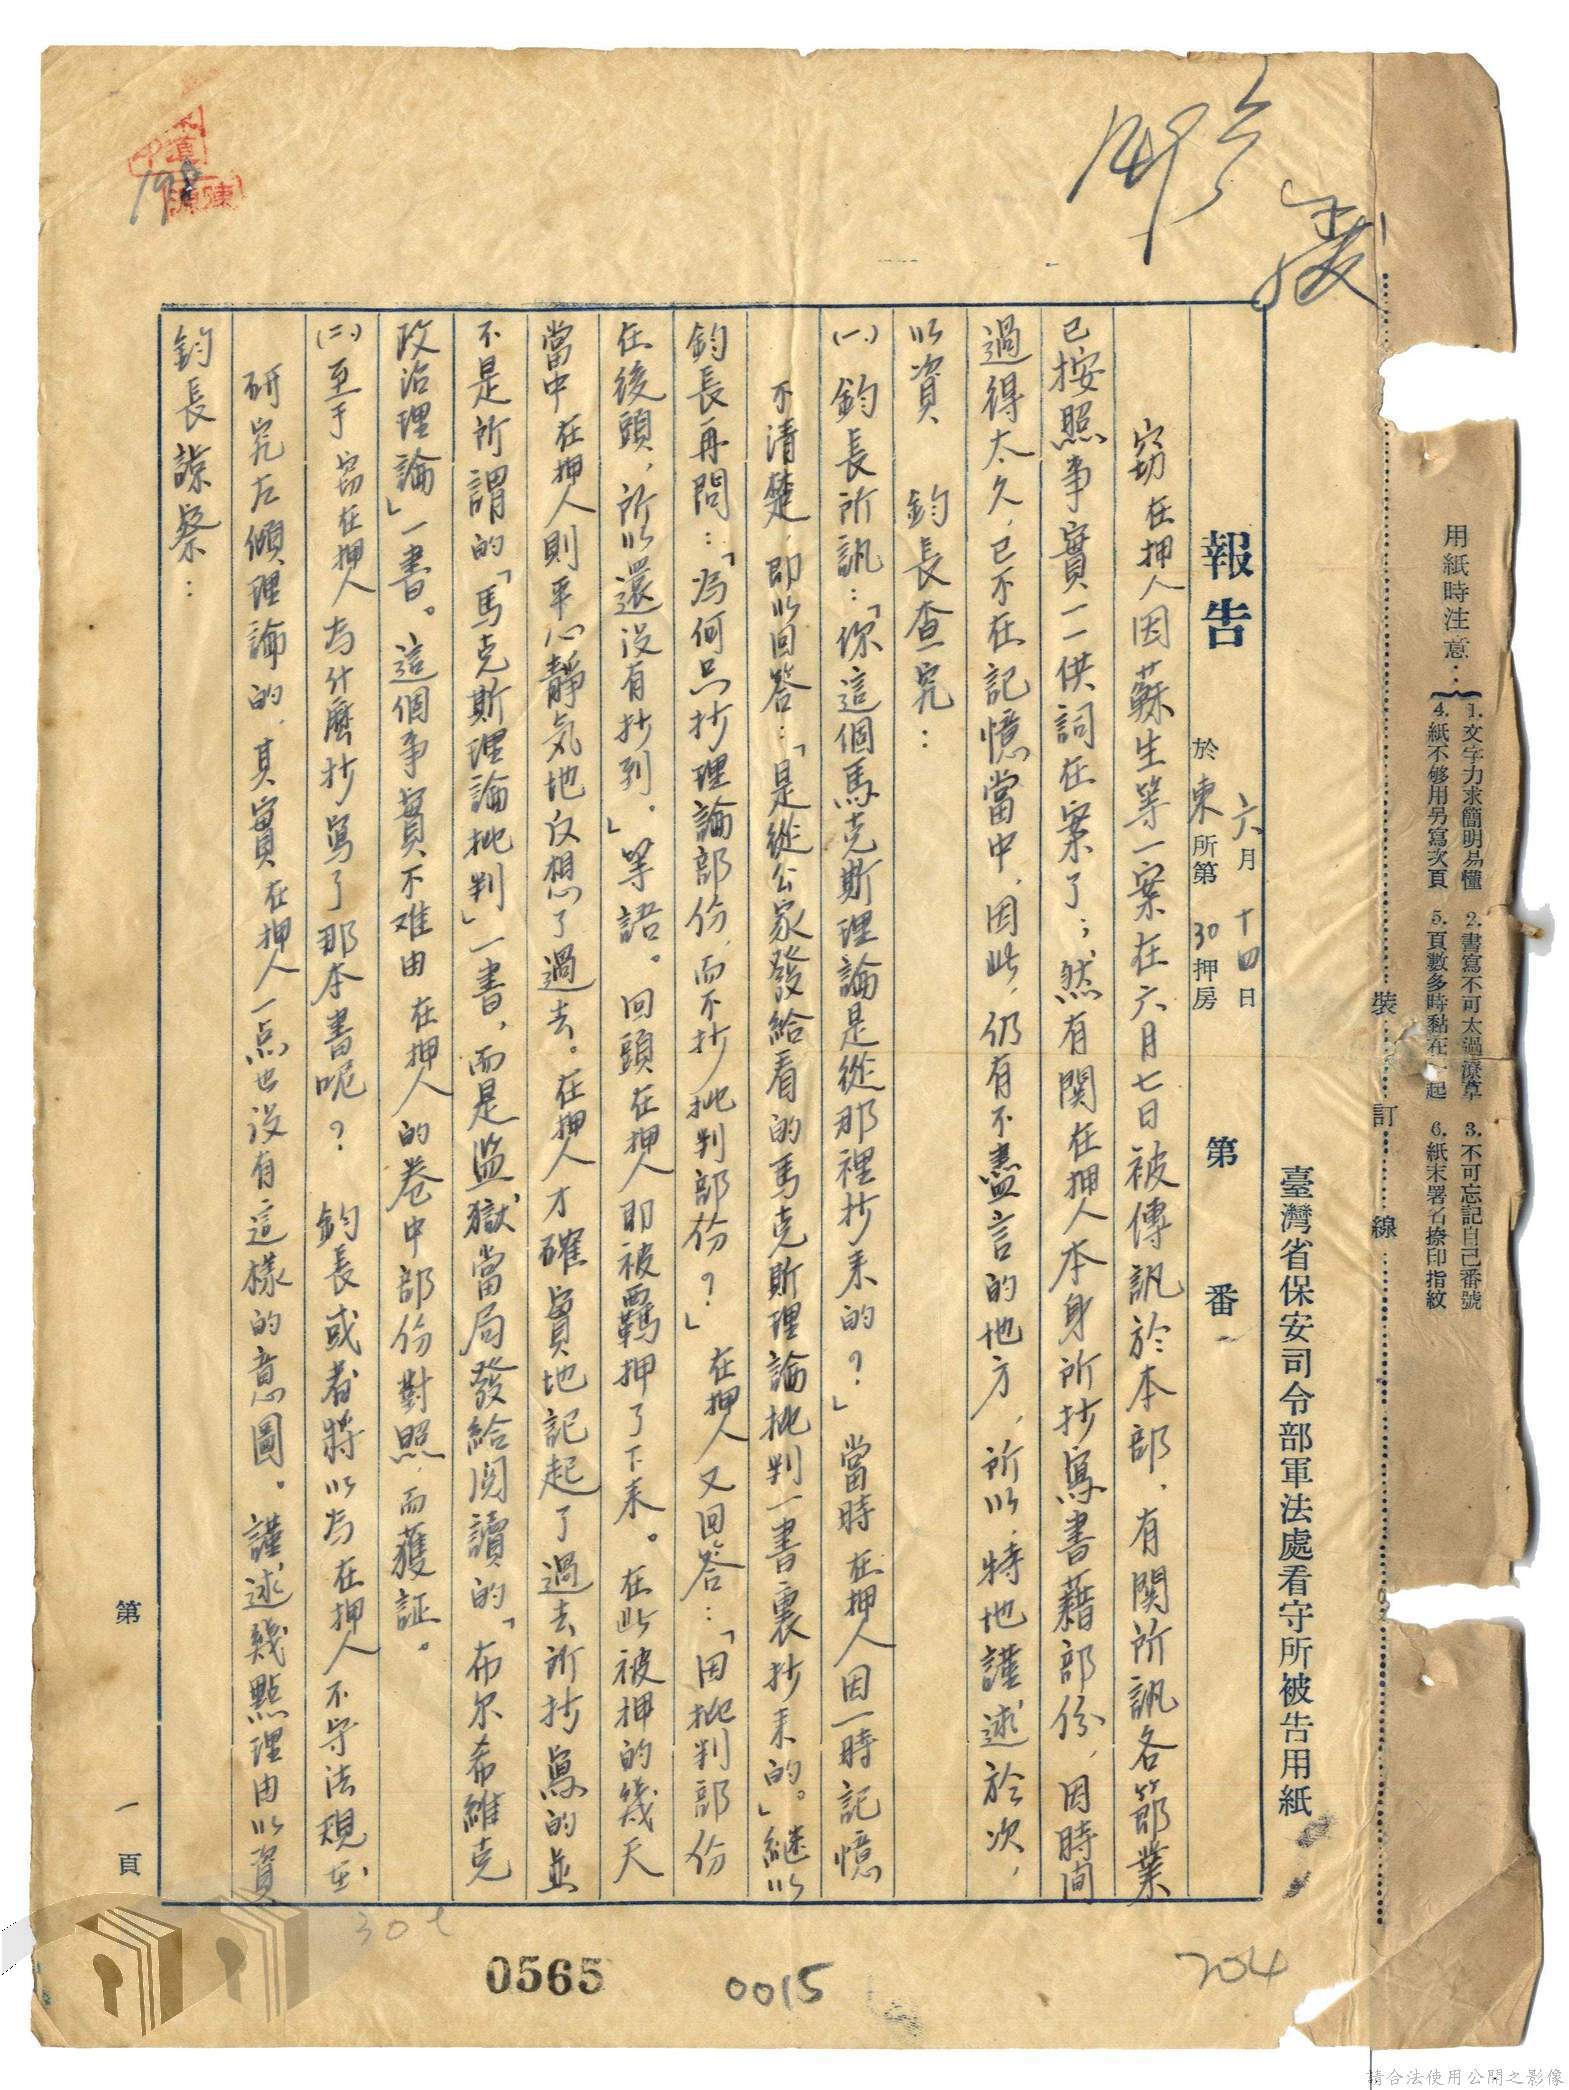 用紙時注意：
1. 文字力求簡明易懂　2. 書寫不可太過潦草　3. 不可忘記自己番號
4. 紙不够用另寫次頁　5. 頁數多時黏在一起　6. 紙末署名捺印指紋
裝訂線
臺灣省保安司令部軍法處看守所被告用紙
報告
六月十四日
於東所第30押房
第　番
竊在押人因蘇生等一案在六月七日被傳訊於本部，有関所訊各節業
已按照事實一一供詞在案了；然有関在押人本身所抄寫書藉部份，因時间
過得太久，已不在記憶當中，因此，仍有不盡言的地方，所以，特地謹述於次，
以資　鈞長查究：
(一)、鈞長所訊：「你這個馬克斯理論是從那裡抄来的？」當時在押人因一時記憶
不清楚，即以回答：「是從公家發給看的馬克斯理論批判一書裏抄来的。」継以
鈞長再問：「為何只抄理論部份，而不抄批判部份？」在押人又回答：「因批判部份
在後頭，所以還没有抄到。」等語。回頭在押人即被覊押了下来。在此被押的幾天
當中在押人則平心靜気地反想了過去。在押人才確實地記起了過去所抄寫的並
不是所謂的「馬克斯理論批判」一書，而是监獄當局發給阅讀的「布尔希維克
政治理論」一書。這個事實不难由在押人的卷中部份對照，而獲証。
(二)、至于竊在押人為什麽抄寫了那本書呢？　鈞長或者將以為在押人不守法規在
研究左傾理論的，其實在押人一点也没有這樣的意圖。謹述幾點理由以資
鈞長諒察：
第一頁
198
0565
0015
704
請合法使用公開之影像